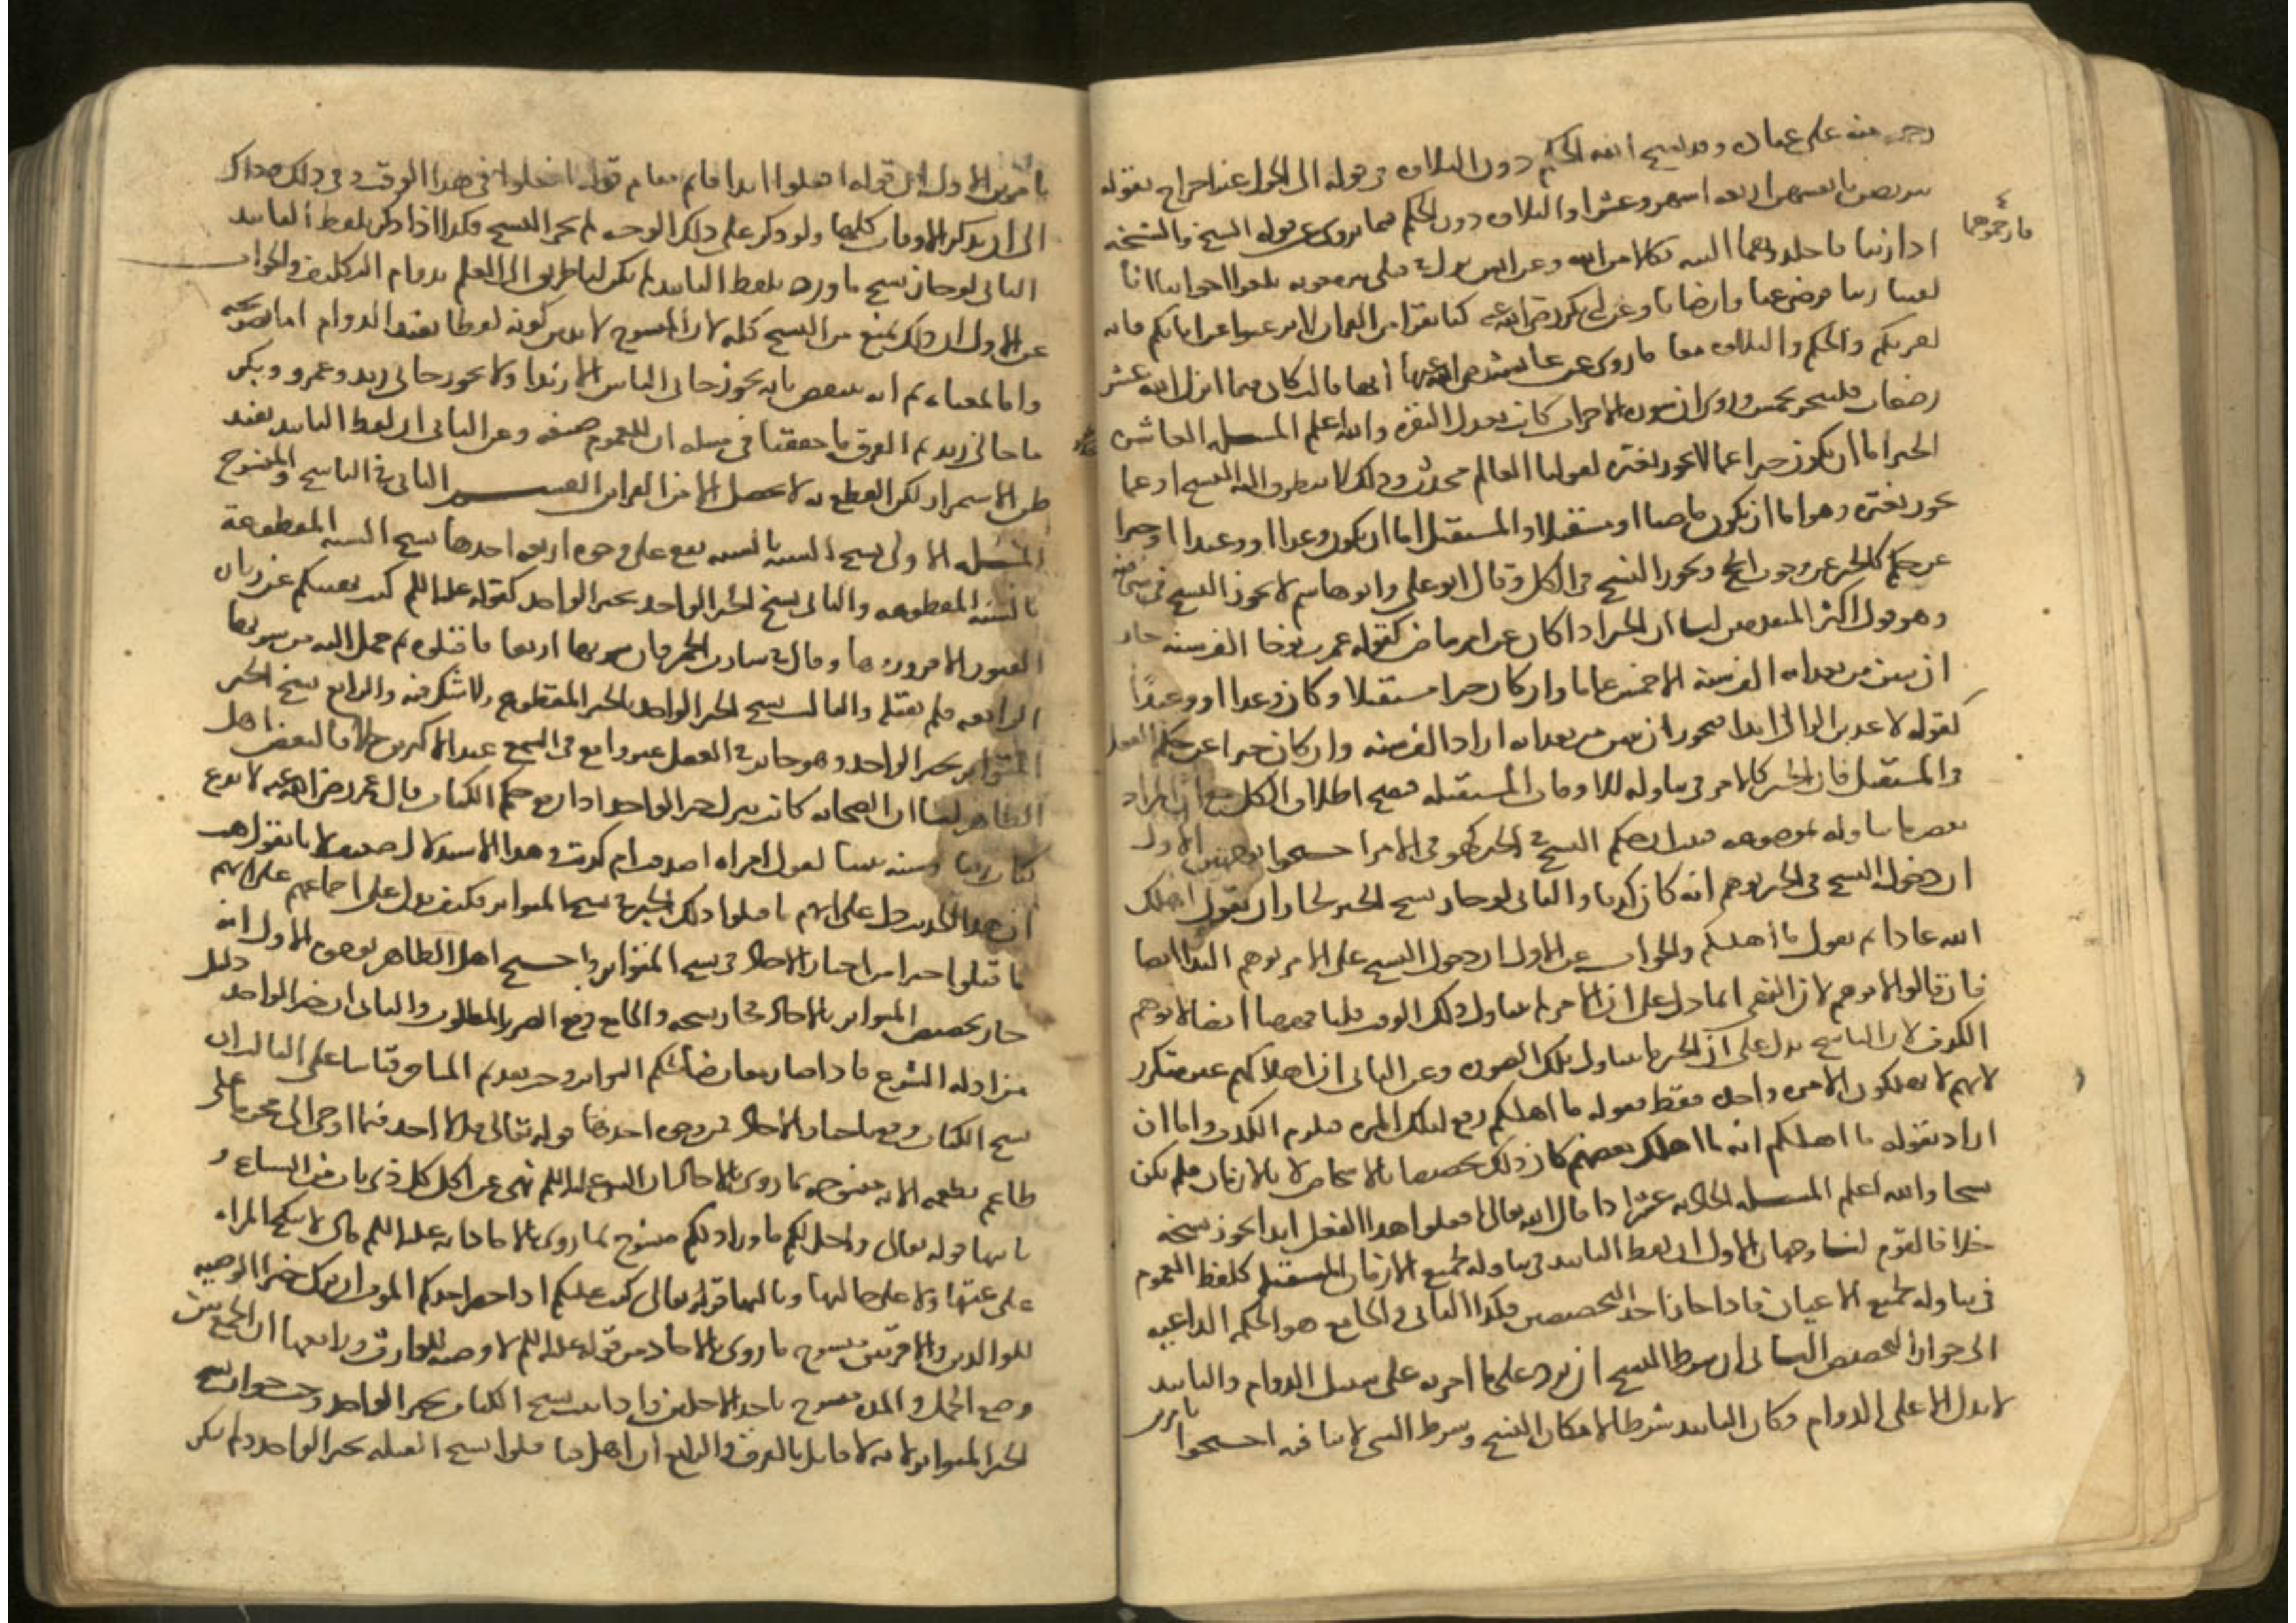 رحمه منه على عباده وقد نسخ الله الحكم دون التلاوة في قوله الى الحول غير اخراج بقوله
يتربصن بانفسهن اربعة اشهر وعشرا والتلاوة دون الحكم فيما يروى من قوله الشيخ والشيخة
اذا زنيا فارجموهما البتة نكالا من الله وعن انس نزل في قتلى بير معونة بلغوا اخواننا انا
لقينا ربنا فرضي عنا وارضانا وعن ابي بكر رضي الله عنه كنا نقرا من القران لا ترغبوا عن ابائكم فانه
كفر بكم والحكم والتلاوة معا ما روى عن عايشة رضي الله عنها انها قالت كان فيما انزل الله عشر
رضعات فنسخن بخمس وروى ان سورة الاحزاب كانت تعدل البقرة والله اعلم المسله العاشره
الخبر اما ان يكون خبرا عما لا يجوز تغيره كقولنا العالم محدث وذلك لا يتطرق اليه النسخ او عما
يجوز تغيره وهو اما ان يكون ماضيا او مستقبلا والمستقبل اما ان يكون وعدا او وعيدا او خبرا
عن حكم كالخبر عن وجوب الحج ويجوز النسخ في الكل وقال ابو علي وابو هاشم لا يجوز النسخ في شي منه
وهو قول اكثر المتقدمين لنا ان الخبر اذا كان عن امر ماض كقوله عمرت نوحا الف سنه جاز
ان يبين من بعد انه الف سنة الا خمسين عاما وان كان خبرا مستقبلا وكان وعدا او وعيدا
كقوله لاعذبن الزاني ابدا فيجوز ان يبين من بعد انه اراد الف سنه وان كان خبرا عن حكم الفعل
في المستقبل فان الخبر كالامر في تناوله للاوقات المستقبله فيصح اطلاق الكل مع ان المراد
بعض ما تناوله بموضوعه فثبت ان حكم النسخ في الخبر كهو في الامر احتجوا بوجهين الاول
ان دخول النسخ في الخبر يوهم انه كان كذبا والثاني لو جاز نسخ الخبر لجاز ان يقول اهلك
الله عادا ثم يقول ما اهلكهم والجواب عن الاول ان دخول النسخ على الامر يوهم البدا ايضا
فان قالوا لا يوهم لان النهي انما دل على ان الامر لم يتناول ذلك الوقت قلنا فهاهنا ايضا لا يوهم
الكذب لان الناسخ يدل على ان الخبر ما تناول تلك الصورة وعن الثاني ان اهلاكهم غير متكرر
لانهم لا يهلكون الا مرة واحدة فقط فقوله ما اهلكهم رفع لتلك المرة فيلزم الكذب واما ان
اراد بقوله ما اهلكهم انه ما اهلك بعضهم كان ذلك تخصيصا بالاشخاص لا بالازمان فلم يكن
نسخا والله اعلم المسله الحاديه عشر اذا قال الله تعالى افعلوا هذا الفعل ابدا يجوز نسخه
خلافا لقوم لنا وجهان الاول ان لفظ التابيد في تناوله لجميع الازمان المستقبله كلفظ العموم
في تناوله لجميع الاعيان فاذا جاز احد التخصيصين فكذا الثاني والجامع هو الحكمه الداعيه
الى جواز التخصيص الثاني ان شرط النسخ ان يرد على ما امر به على سبيل الدوام والتابيد
لا يدل الا على الدوام فكان التابيد شرطا لامكان النسخ وشرط الشي لا ينافيه احتجوا
بامرين
فارجموهما
بامرين الاول ان قوله افعلوا ابدا قايم مقام قوله افعلوا في هذا الوقت وفي ذلك وذاك
الى ان يذكر الاوقات كلها ولو ذكر على ذلك الوجه لم يجز النسخ فكذا اذا ذكر بلفظ التابيد
الثاني لو جاز نسخ ما ورد بلفظ التابيد لم يكن لنا طريق الى العلم بدوام التكليف والجواب
عن الاول ان ذلك يمنع من النسخ كله لان المنسوخ لا بد من كونه لفظا يفيد الدوام اما بصريحه
واما بمعناه ثم انه ينتقض بانه يجوز جاني الناس الا زيدا ولا يجوز جاني زيد وعمرو وبكر
ما جاني زيد ثم الفرق ما حققنا في مسله ان للعموم صيغه وعن الثاني ان لفظ التابيد يفيد
ظن الاستمرار لكن القطع به لا يحصل الا من القراين القسم الثاني في الناسخ والمنسوخ
المسله الاولى نسخ السنة بالسنه يقع على وجوه اربعه احدها نسخ السنه المقطوعة
بالسنة المقطوعه والثاني نسخ الخبر الواحد بخبر الواحد كقوله عليه السلم كنت نهيتكم عن زياره
القبور الا فزوروها وقال في شارب الخمر فان شربها اربعا فاقتلوه ثم حمل اليه من شربها
الرابعه فلم يقتله والثالث نسخ الخبر الواحد بالخبر المقطوع ولا شك فيه والرابع نسخ الخبر
المتواتر بخبر الواحد وهو جايز في العقل غير واقع في السمع عند الاكثرين خلافا لبعض اهل
الظاهر لنا ان الصحابه كانت تترك خبر الواحد اذا رفع حكم الكتاب قال عمر رضي الله عنه لا ندع
كتاب ربنا وسنه نبينا لقول امراه اصدقت ام كذبت وهذا الاستدلال ضعيف لانا نقول هب
ان هذا الحديث دل على انهم ما قبلوا ذلك الخبر في نسخ المتواتر فكيف يدل على اجماعهم على انهم
ما قبلوا خبرا من اخبار الاحاد في نسخ المتواتر واحتج اهل الظاهر بوجوه الاول انه
جاز تخصيص المتواتر بالاحاد فجاز نسخه والجامع دفع الضرر المظنون والثاني ان خبر الواحد دليل
من ادله الشرع فاذا صار معارضا لحكم المتواتر وجب تقديم المتاخر قياسا على الثالث ان
نسخ الكتاب وقع باخبار الاحاد من وجوه احدها قوله تعالى قل لا اجد فيما اوحي الي محرما على
طاعم يطعمه الاية منسوخه بما روى بالاحاد ان النبي عليه السلم نهى عن اكل كل ذي ناب من السباع و
ثانيها قوله تعالى واحل لكم ما وراء ذلكم منسوخ بما روى بالاحاد انه عليه السلم قال لا تنكح المراه
على عمتها ولا على خالتها وثالثها قوله تعالى كتب عليكم اذا حضر احدكم الموت ان ترك خيرا الوصيه
للوالدين والاقربين منسوخ بما روى بالاحاد من قوله عليه السلم لا وصيه لوارث ورابعها ان الجمع بين
وضع الحمل والمده منسوخ باحد الاجلين واذا ثبت نسخ الكتاب بخبر الواحد وجب جواز نسخ
الخبر المتواتر لانه لا قايل بالفرق والرابع ان اهل قبا قبلوا نسخ القبله بخبر الواحد ولم ينكر